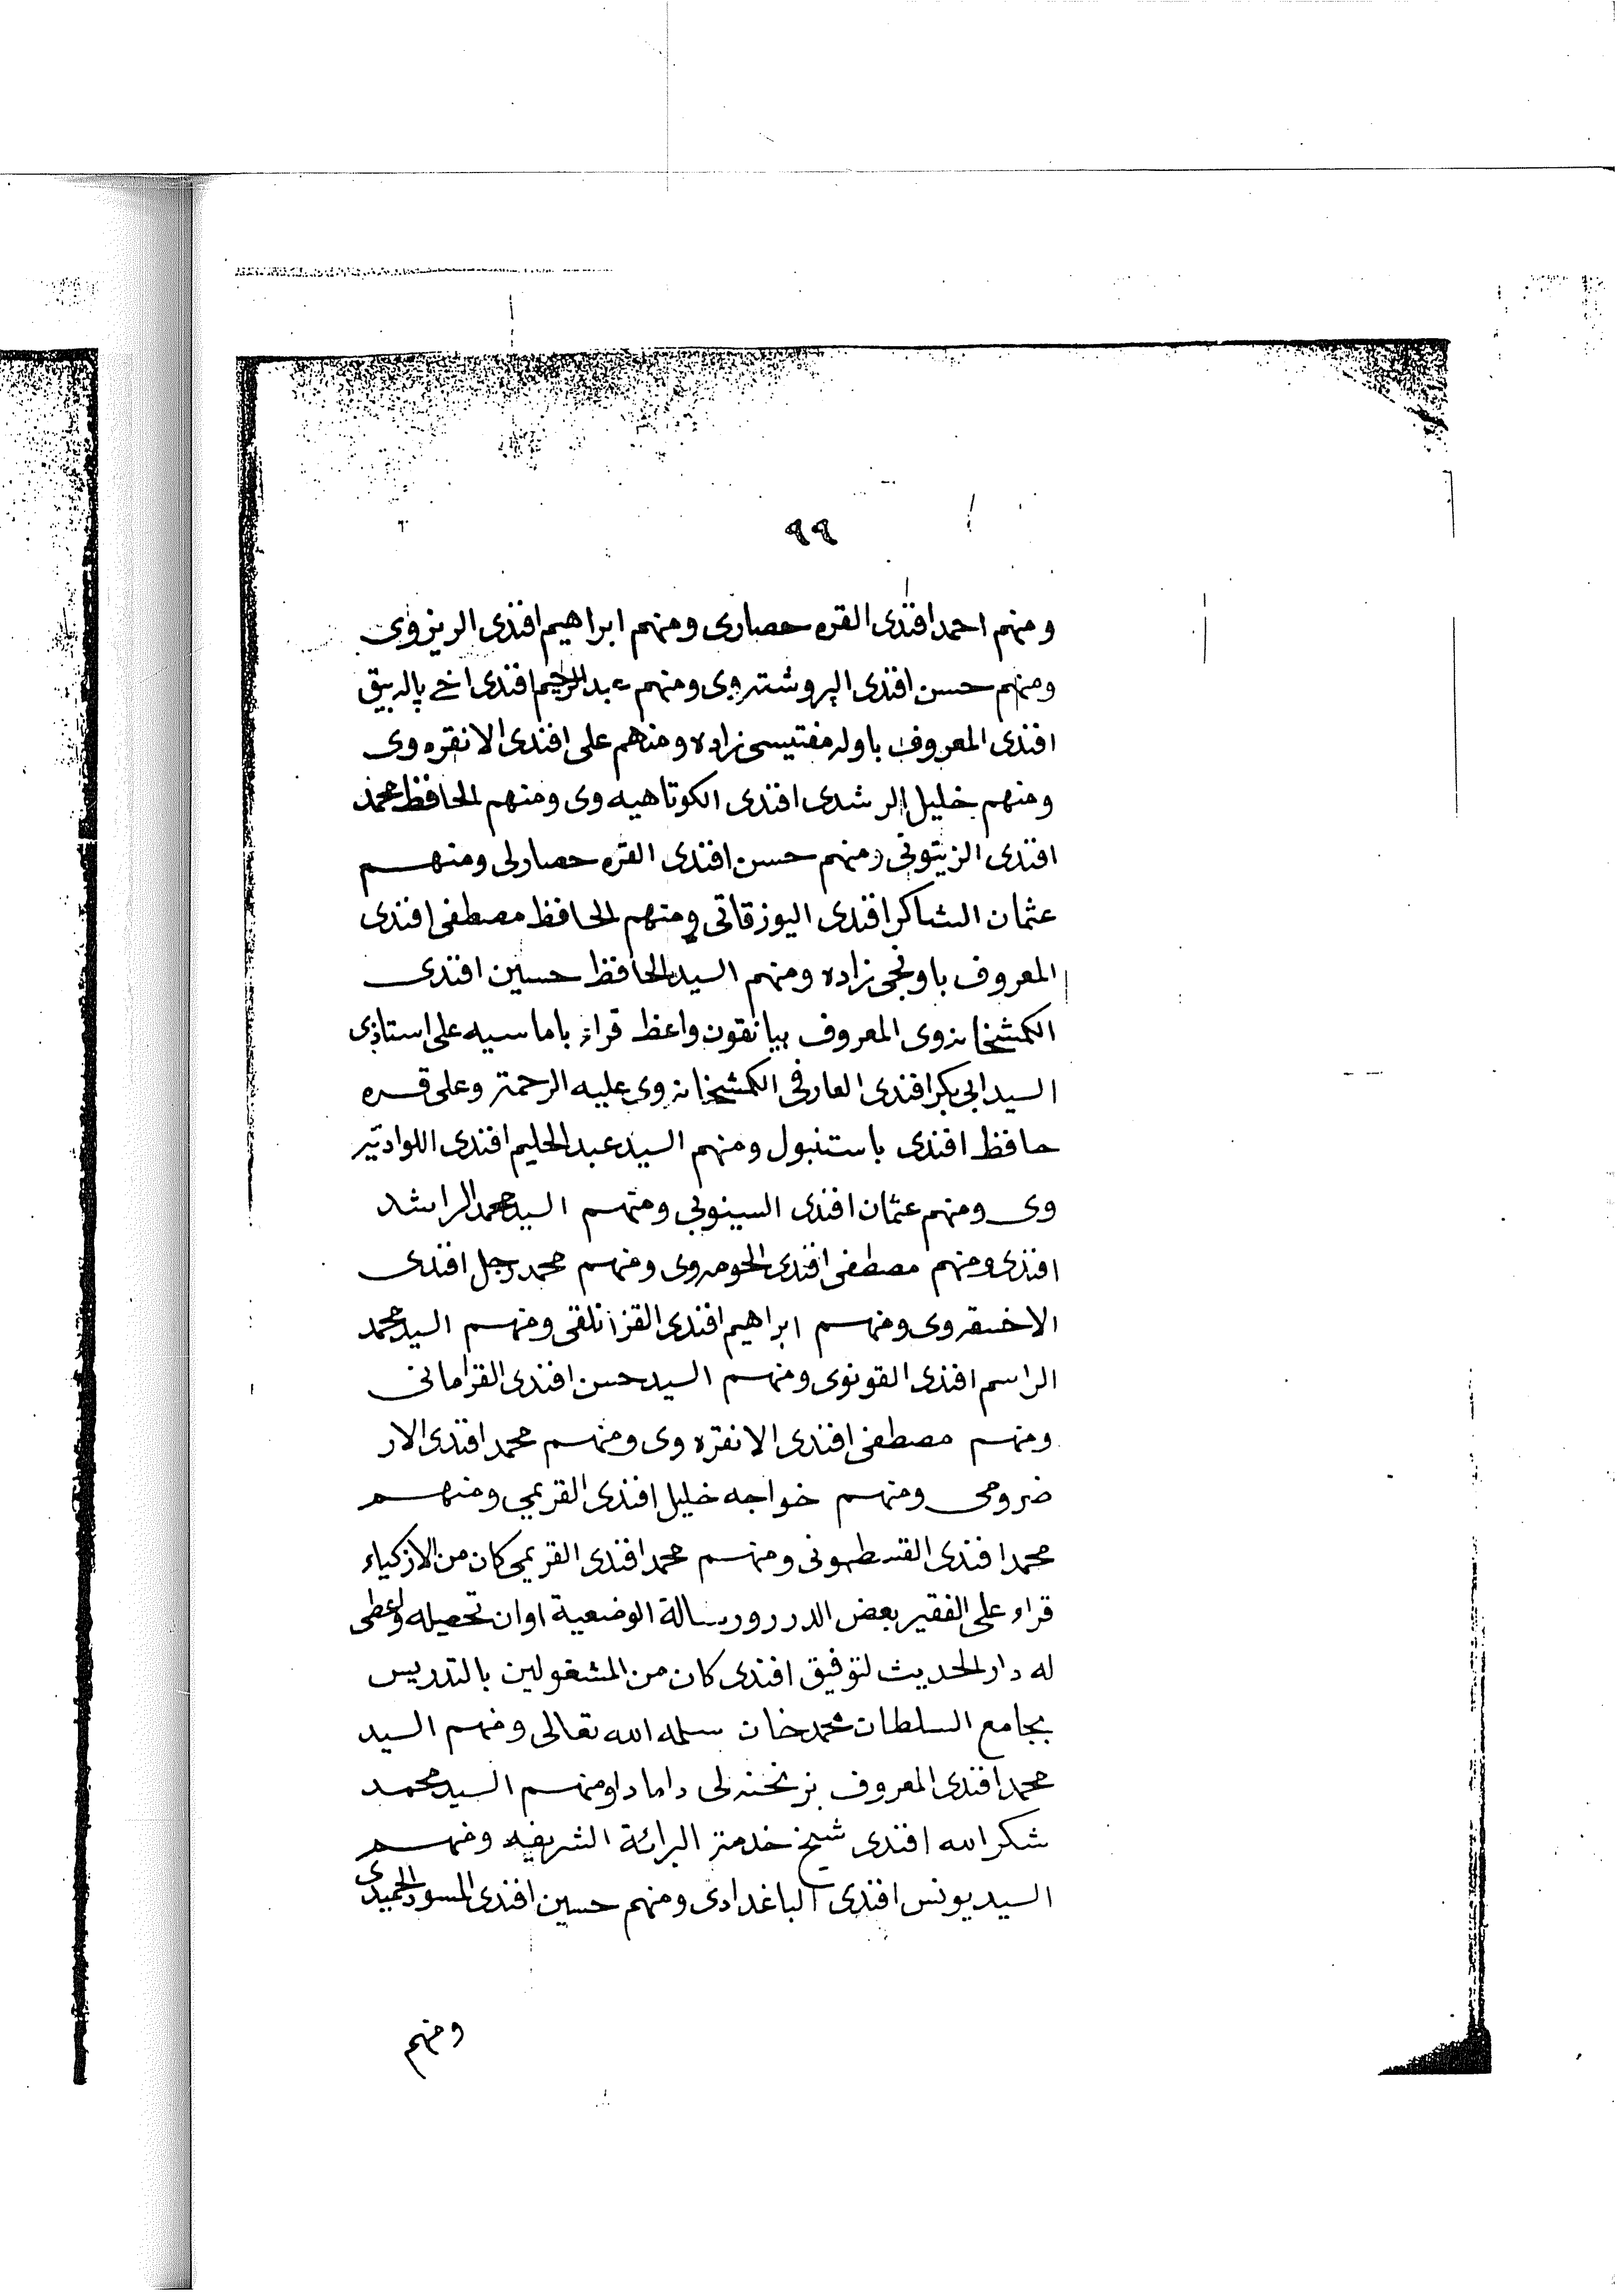 ٩٩
ومنهم احمد افندى القره حصارى ومنهم ابراهيم افندى الريزوى
ومنهم حسن افندى البروشتروى ومنهم عبد الرحيم افندى اخى پاله بيق
افندى المعروف باوله مفتيسى زاده ومنهم على افندى الانقره وى
ومنهم خليل الرشدى افندى الكوتاهيه وى ومنهم الحافظ محمد
افندى الزيتونى ومنهم حسن افندى القره حصارلى ومنهم
عثمان الشاكر افندى اليوزقاتى ومنهم الحافظ مصطفى افندى
المعروف باونجى زاده ومنهم السيد الحافظ حسين افندى
الكمشخانه وى المعروف بيانقون واعظ قراء باماسيه على استاذى
السيد ابى بكر افندى العارفى الكمشخانه وى عليه الرحمة وعلى قره
حافظ افندى باستنبول ومنهم السيد عبد الحليم افندى اللوادير
وى ومنهم عثمان افندى السينوبى ومنهم السيد محمد الراشد
افندى ومنهم مصطفى افندى الحومروى ومنهم محمد رجل افندى
الاخسقروى ومنهم ابراهيم افندى القزانلقى ومنهم السيد محمد
الراسم افندى القونوى ومنهم السيد حسن افندى القرامانى
ومنهم مصطفى افندى الانقره وى ومنهم محمد افندى الار
ضرومى ومنهم خواجه خليل افندى القريمي ومنهم
محمد افندى القسطمونى ومنهم محمد افندى القريمى كان من الازكياء
قراء على الفقير بعض الدرر ورسالة الوضعية اوان تحصيله واعطى
له دار الحديث لتوفيق افندى كان من المشغولين بالتدريس
بجامع السلطان محمد خان سلمه الله تعالى ومنهم السيد
محمد افندى المعروف بزنخنه لى داماد او منهم السيد محمد
شكر الله افندى شيخ خدمة البرائة الشريفه ومنهم
السيد يونس افندى الباغدادى ومنهم حسين افندى المسود الحميدى
ومنهم